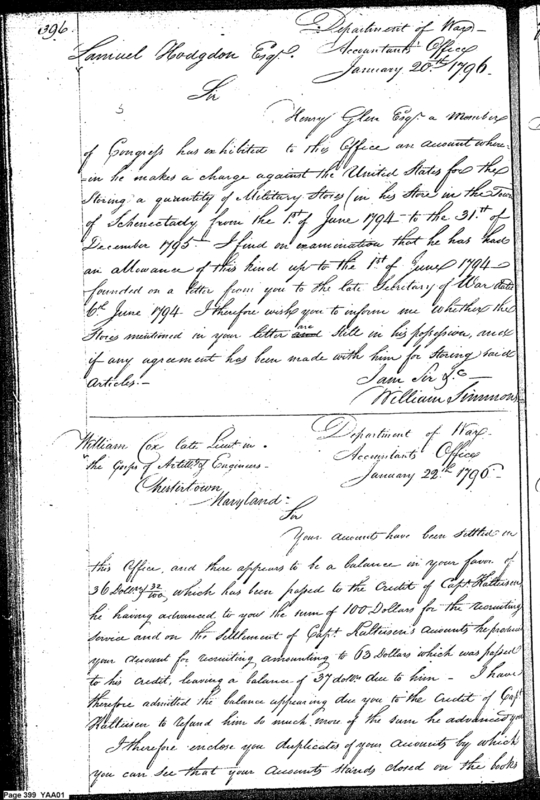 396.
Department of War
Accountants Office
January 20th 1796.
Samuel Hodgdon Esqr.
Sir
Henry Glen Esqr. a Member
of Congress has exhibited to this Office an account where-
in he makes a charge against the United States for the
Storing a quantity of Military Stores (in his Store in the Town
of Schenectady from the 1st. of June 1794 to the 31st. of
December 1795 - I find on examination that he has had
an allowance of this kind up to the 1st. of June 1794
founded on a letter from you to the late Secretary of War dated
6th June 1794. I therefore wish you to inform me whether the
Stores mentioned in your letter are and still in his possession, and
if any agreement has been made with him for Storing said
Articles.-
I am Sir &c-
William Simmons
Department of War
Accountants Office
January 22th. 1796-
William Cox late Lieut in
the Corps of Artillts. & Engineers
Chestertown
Maryland-
Sir
Your accounts have been settled on
this Office, and there appears to be a balance in your favor of
36 Dollars 32/100, which has been passed to the Credit of Capt.
he having advanced to you the sum of 100 Dollars for the recruiting
service and on the settlement of Capt. accounts he produced
your account for recruiting amounting to 63 Dollars which was passed
to his credit, leaving a balance of 37 dolls due to him - I have
therefore admitted the balance appearing due you to the Credit of Capt
to refund him so much more of the sum he advanced you
I therefore enclose you duplicates of your accounts by which
you can see that your accounts stands closed on the books
Page 399 YAA01